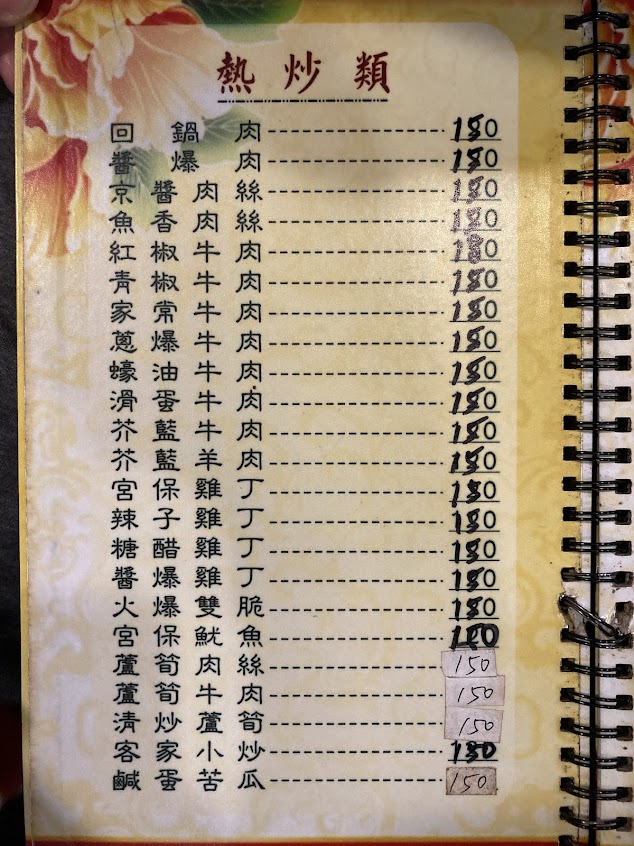 熱炒類
回鍋肉 180
醬爆肉 180
京醬肉絲 180
魚香肉絲 180
紅椒牛肉 180
青椒牛肉 180
家常牛肉 180
蔥爆牛肉 180
蠔油牛肉 180
滑蛋牛肉 180
芥藍牛肉 180
芥藍羊肉 180
宮保雞丁 180
辣子雞丁 180
糖醋雞丁 180
醬爆雞丁 180
火爆雙脆 180
宮保魷魚
蘆筍肉絲 150
蘆筍牛肉 150
清炒蘆筍 150
客家小炒 180
鹹蛋苦瓜 150